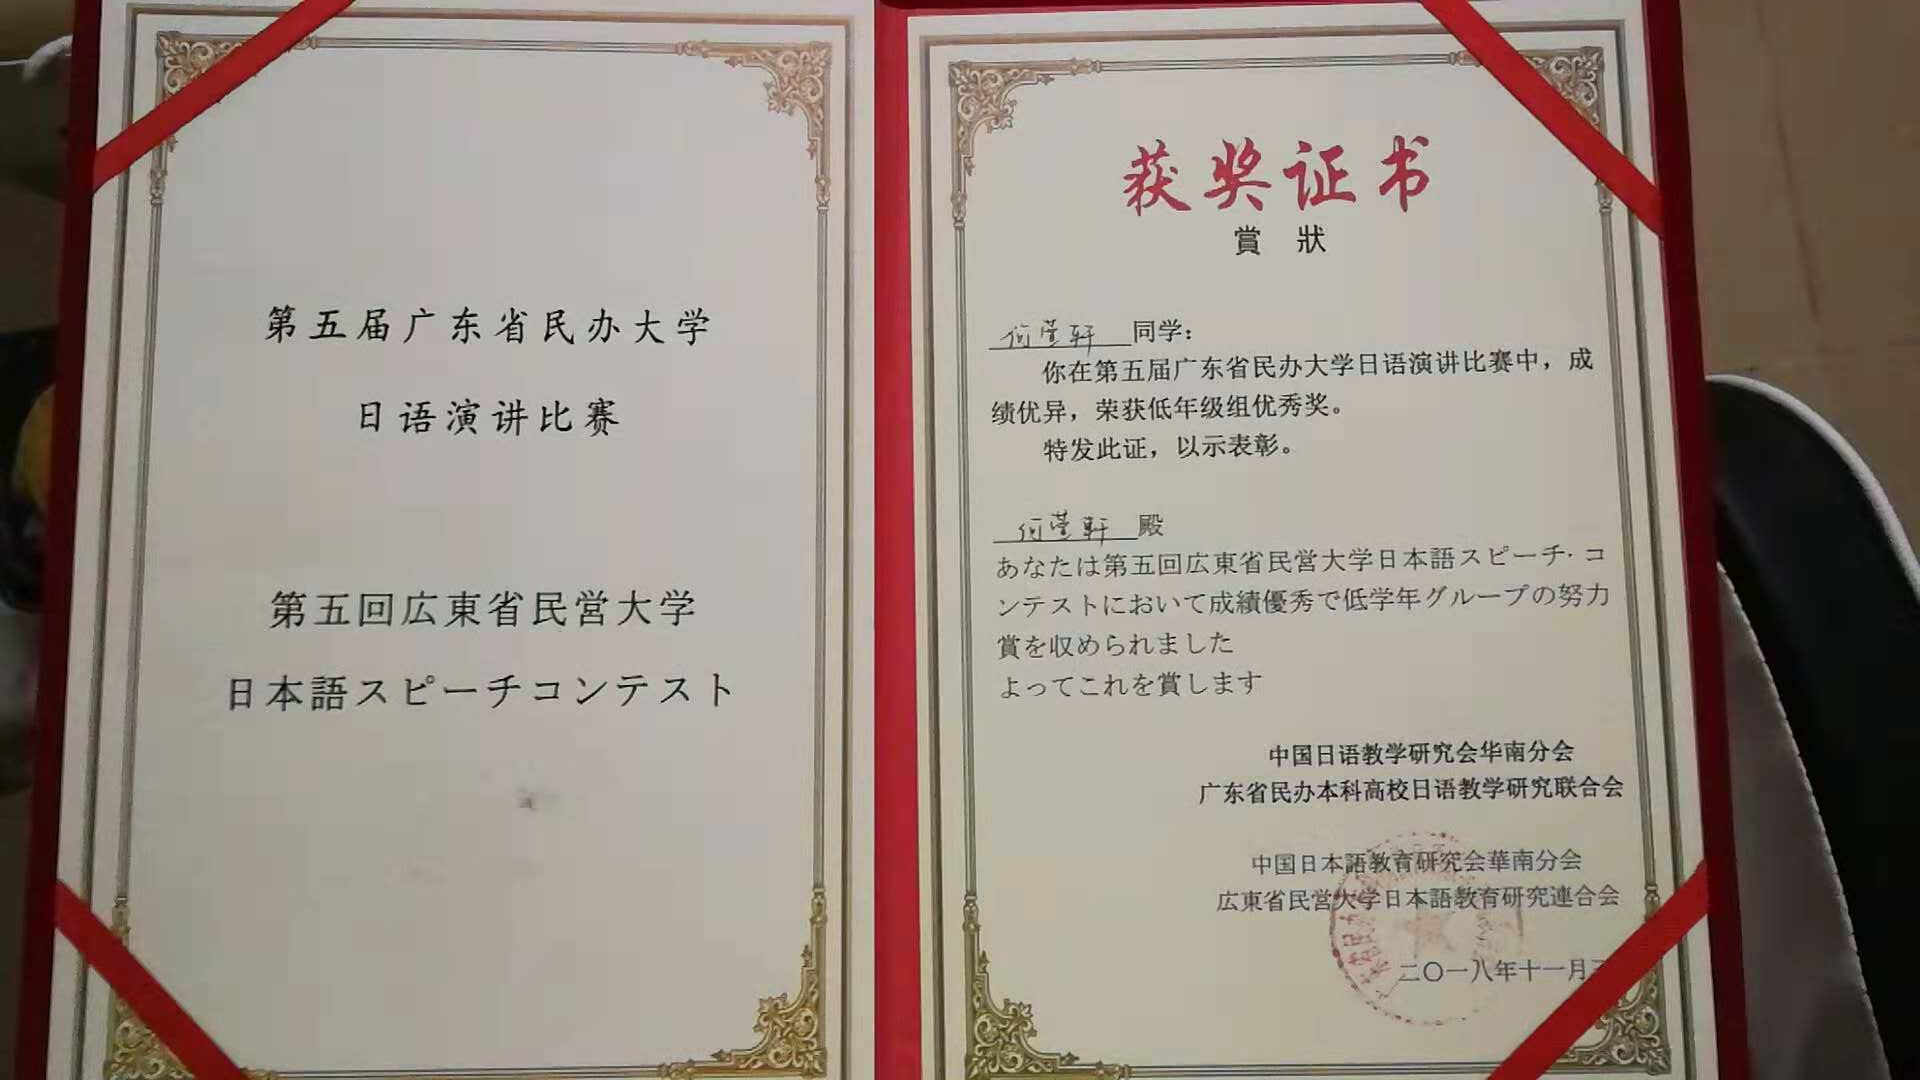 第五届广东省民办大学
日语演讲比赛
第五回広東省民営大学
日本語スピーチコンテスト
获奖证书
賞 狀
何莹轩 同学：
你在第五届广东省民办大学日语演讲比赛中，成
绩优异，荣获低年级组优秀奖。
特发此证，以示表彰。
何莹軒 殿
あなたは第五回広東省民営大学日本語スピーチ·コ
ンテストにおいて成績優秀で低学年グループの努力
賞を収められました
よってこれを賞します
中国日语教学研究会华南分会
广东省民办本科高校日语教学研究联合会
中国日本語教育研究会華南分会
広東省民営大学日本語教育研究連合会
二〇一八年十一月